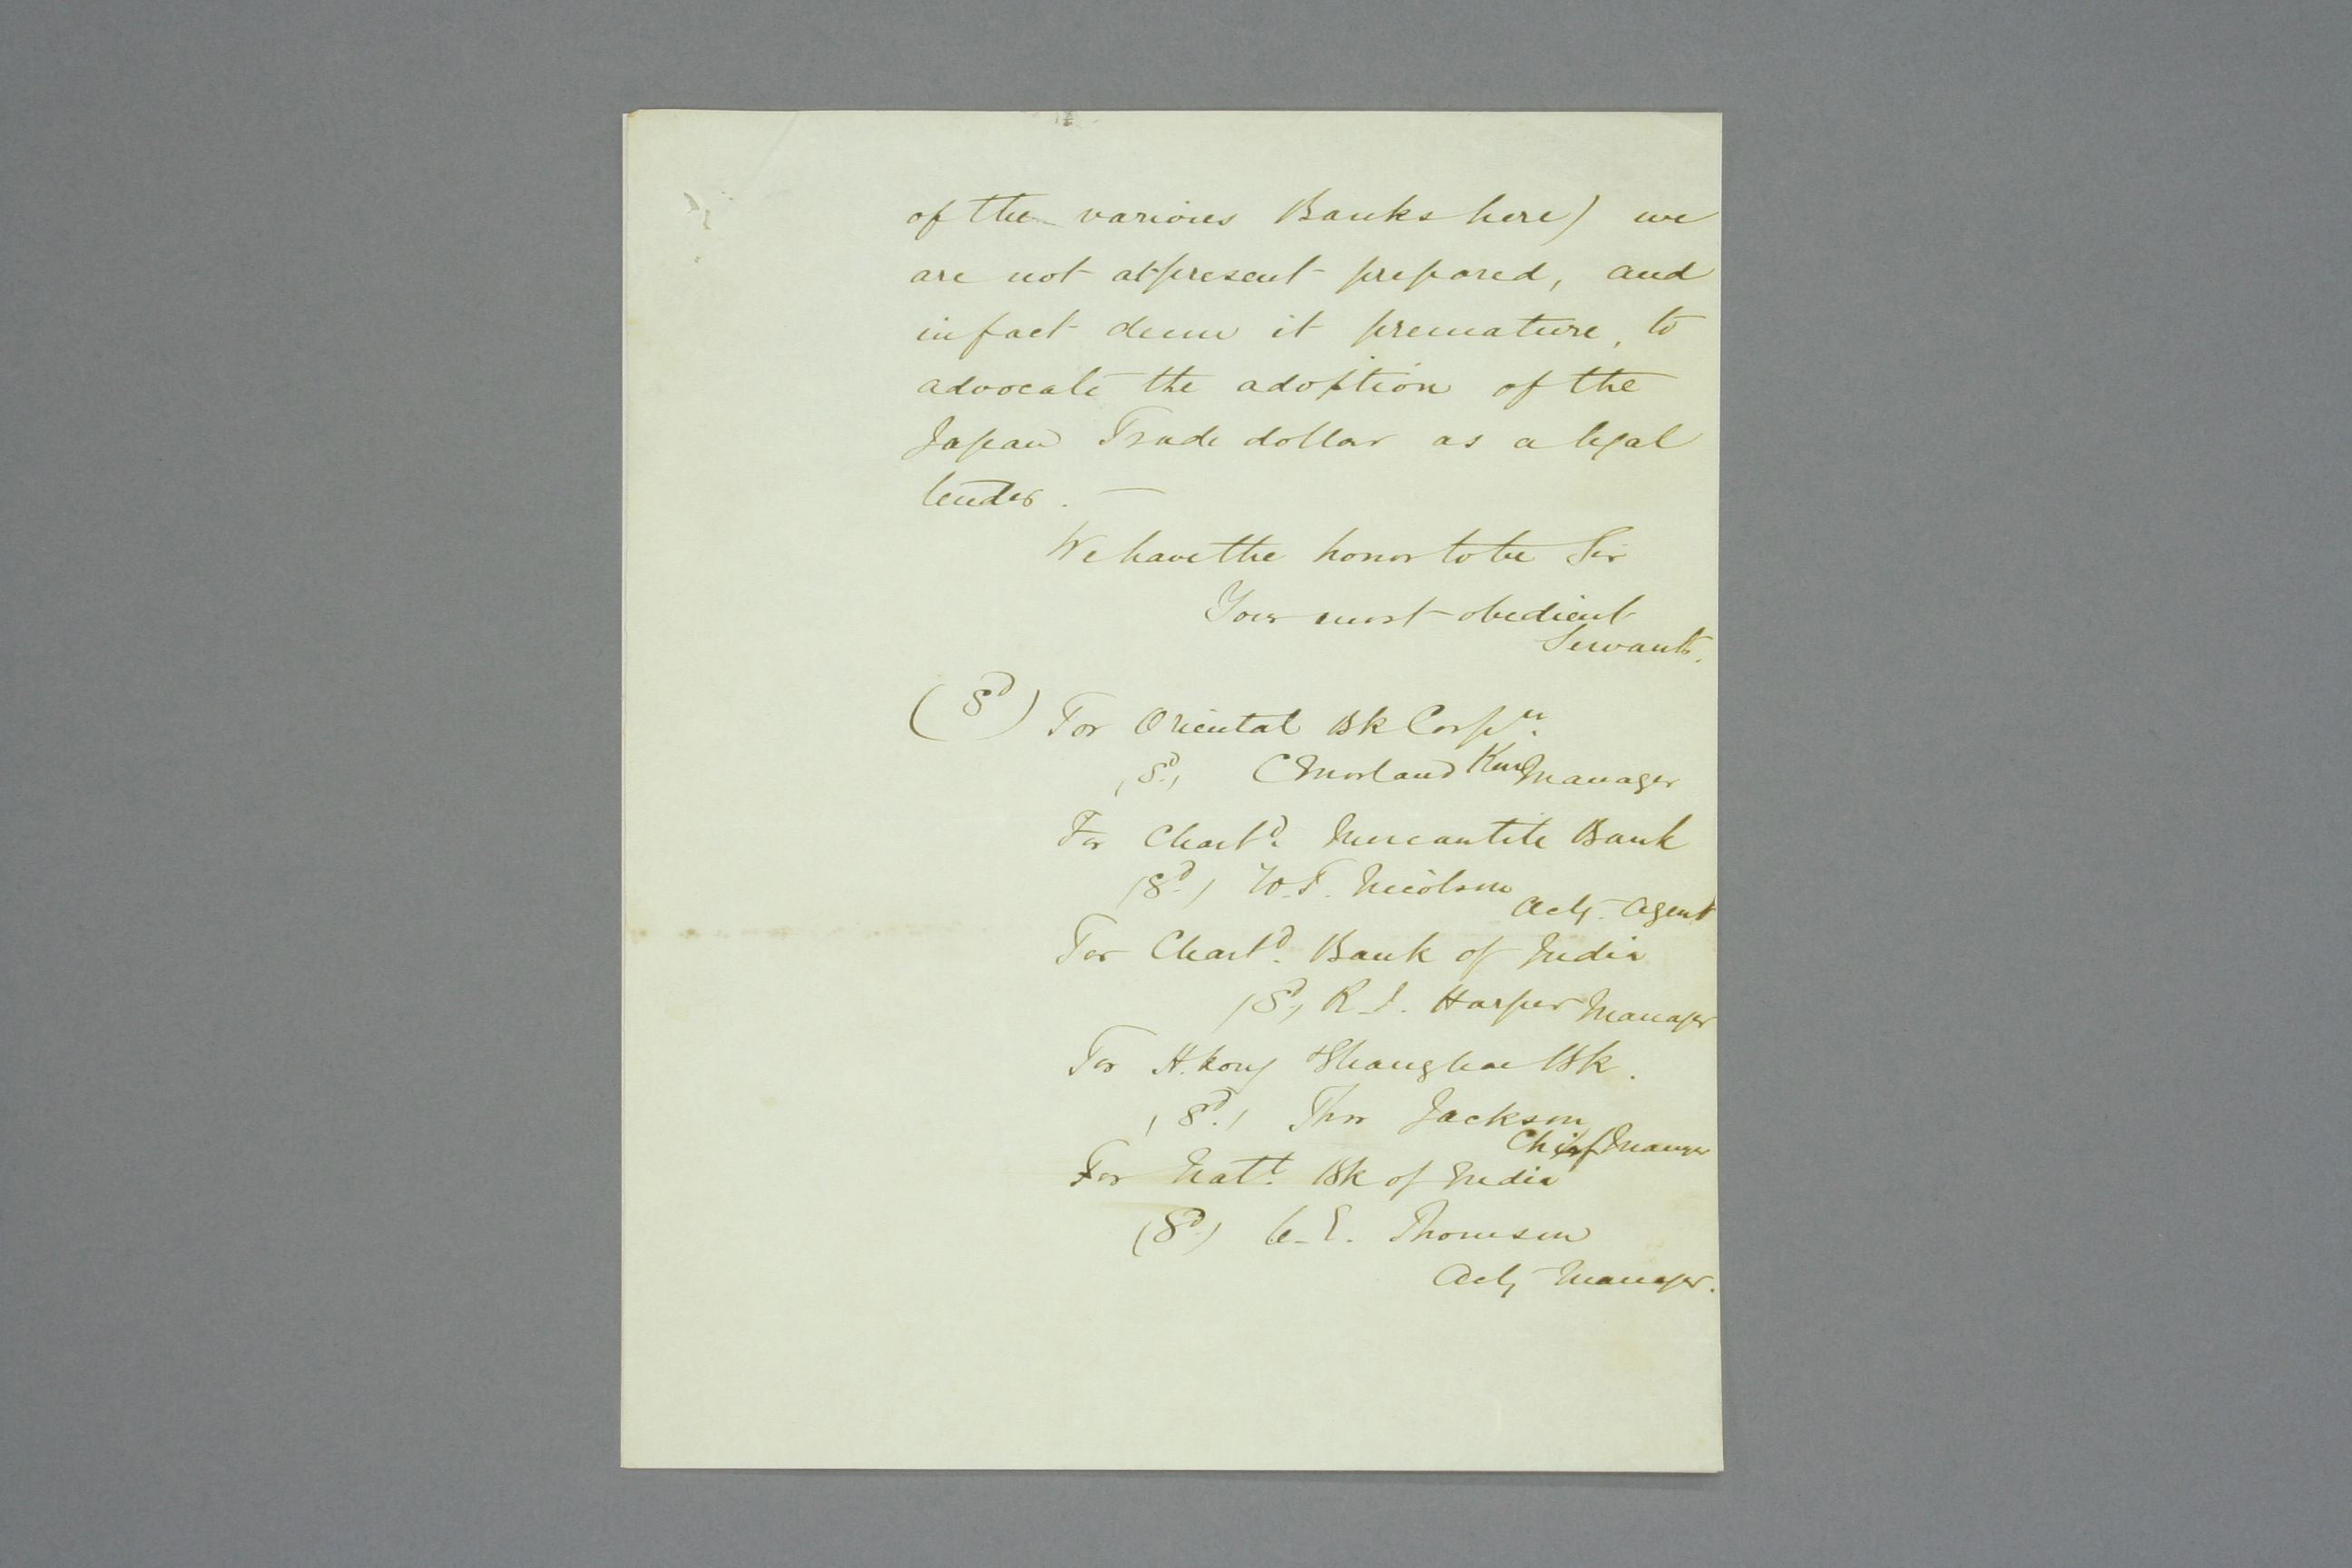 of the various Banks here) we
are not at present prepared, and
in fact deem it premature, to
advocate the adoption of the
Japan Trade dollar as a legal
tender. —
We have the honor to be Sir
Your most obedient
Servants.
(Sd) For Oriental Bk Corpn.
(Sd.) C Morland Kerr Manager
For Chartd. Mercantile Bank
(Sd.) W. F. Nicolson
Actg. Agent
For Chartd. Bank of India
(Sd.) R. I. Harper Manager
For H. kong Shanghae Bk.
(Sd.) Thos Jackson
Chief Manager
For Natl. Bk of India
(Sd.) C. E. Thomson
Actg Manager.